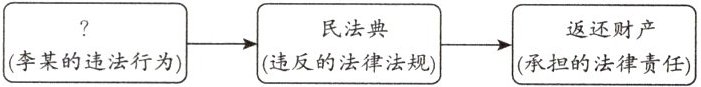 ?
(李某的违法行为)
民法典
(违反的法律法规)
返还财产
(承担的法律责任)